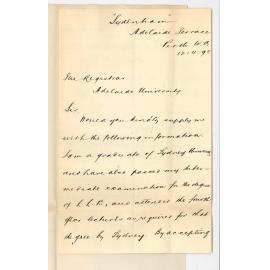 "Sydenham"
Adelaide Terrace
Perth W.A
12.4.92
The Registrar
Adelaide University
Sir
Would you kindly supply me
with the following information
I am a graduate of Sydney University
and have also passed my Inter-
mediate examination for the degree
of L.L.B, and attended the fourth
year lectures as required for that
degree by Sydney. By accepting